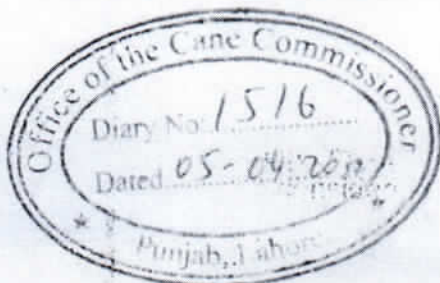 Office of the Cane Commissioner
Diary No. 1516
Dated 05-04-
Punjab, Lahore